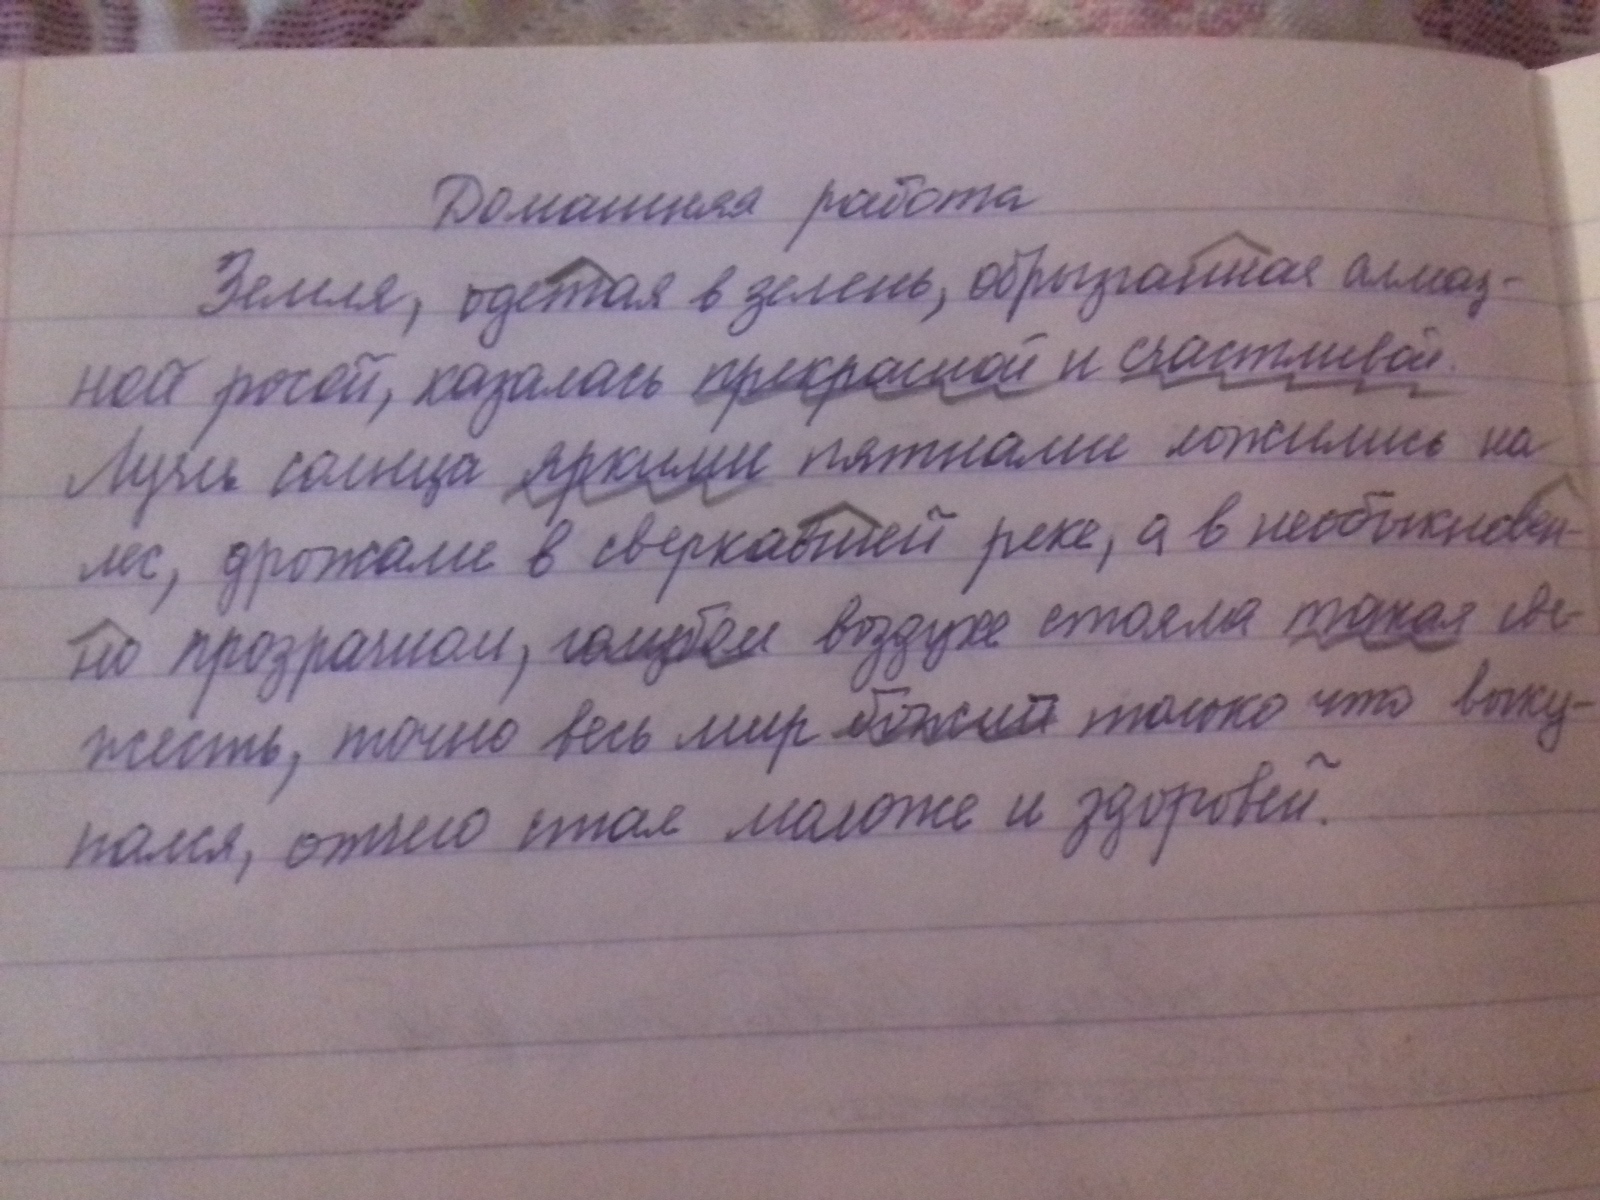 Домашняя работа
Земля, одетая в зелень, обрызганная алмаз-
ной росой, казалась прекрасной и счастливой.
Лучи солнца яркими пятнами ложились на
лес, дрожали в сверкавшей реке, а в необыкновен-
но прозрачном, голубом воздухе стояла такая све-
жесть, точно весь мир божий только что выку-
пался, отчего стал моложе и здоровей.